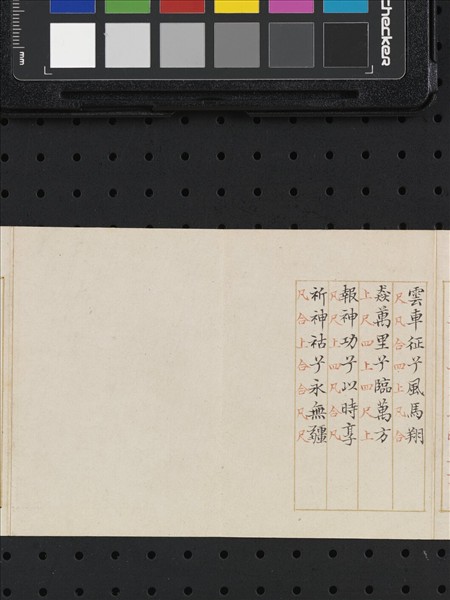 checker
mm
雲車征兮風馬翔
尺凡合四上凡合
猋萬里兮臨萬方
上尺四上四尺上
報神功兮以時享
凡尺上四凡合凡
祈神祜兮永無疆
凡合上合合凡尺